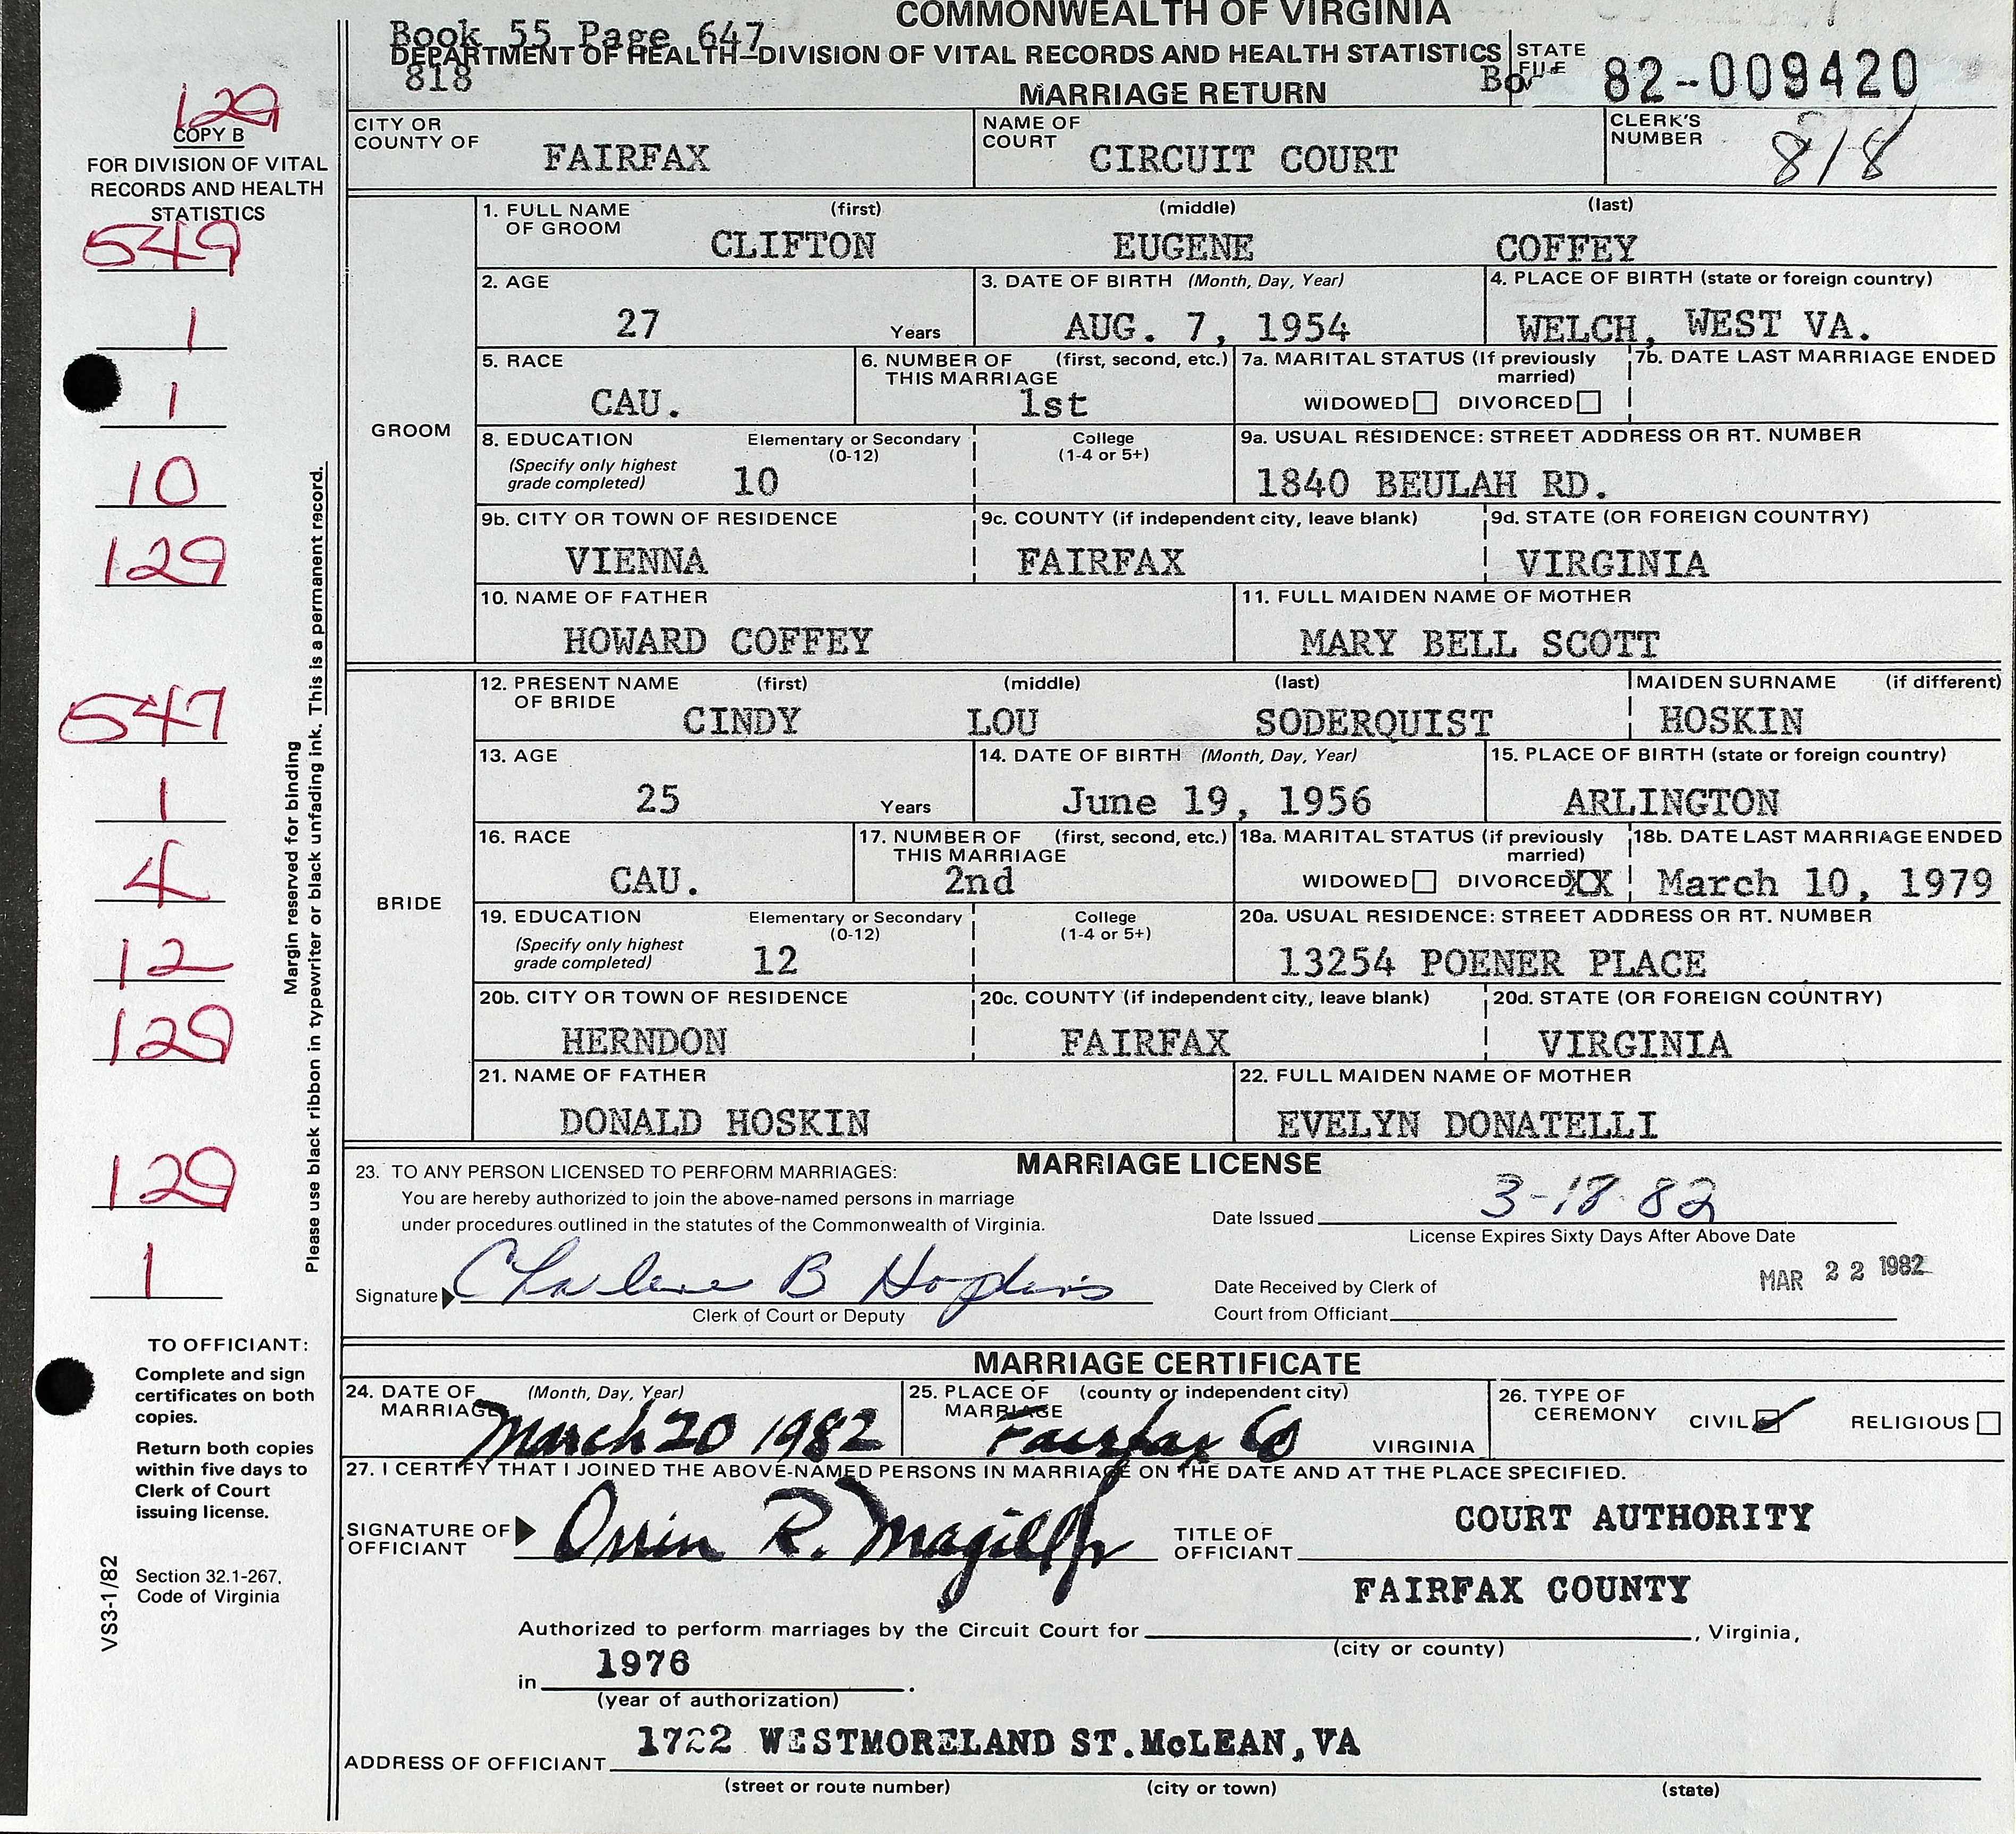 COMMONWEALTH OF VIRGINIA
Book 55 Page 647
DEPARTMENT OF HEALTH—DIVISION OF VITAL RECORDS AND HEALTH STATISTICS
818
MARRIAGE RETURN
STATE FILE 82-009420
129
COPY B
FOR DIVISION OF VITAL
RECORDS AND HEALTH
STATISTICS
CITY OR COUNTY OF FAIRFAX
NAME OF COURT CIRCUIT COURT
CLERK'S NUMBER 818
549
1
1
10
129
547
1
4
12
129
129
1
Margin reserved for binding
Please use black ribbon in typewriter or black unfading ink. This is a permanent record.
GROOM
1. FULL NAME OF GROOM (first) (middle) (last)
CLIFTON EUGENE COFFEY
2. AGE 27 Years
3. DATE OF BIRTH (Month, Day, Year) AUG. 7, 1954
4. PLACE OF BIRTH (state or foreign country) WELCH, WEST VA.
5. RACE CAU.
6. NUMBER OF THIS MARRIAGE (first, second, etc.) 1st
7a. MARITAL STATUS (If previously married) WIDOWED DIVORCED
7b. DATE LAST MARRIAGE ENDED
8. EDUCATION (Specify only highest grade completed) Elementary or Secondary (0-12) 10 College (1-4 or 5+)
9a. USUAL RESIDENCE: STREET ADDRESS OR RT. NUMBER 1840 BEULAH RD.
9b. CITY OR TOWN OF RESIDENCE VIENNA
9c. COUNTY (if independent city, leave blank) FAIRFAX
9d. STATE (OR FOREIGN COUNTRY) VIRGINIA
10. NAME OF FATHER HOWARD COFFEY
11. FULL MAIDEN NAME OF MOTHER MARY BELL SCOTT
BRIDE
12. PRESENT NAME OF BRIDE (first) (middle) (last) MAIDEN SURNAME (if different)
CINDY LOU SODERQUIST HOSKIN
13. AGE 25 Years
14. DATE OF BIRTH (Month, Day, Year) June 19, 1956
15. PLACE OF BIRTH (state or foreign country) ARLINGTON
16. RACE CAU.
17. NUMBER OF THIS MARRIAGE (first, second, etc.) 2nd
18a. MARITAL STATUS (if previously married) WIDOWED DIVORCED XX
18b. DATE LAST MARRIAGE ENDED March 10, 1979
19. EDUCATION (Specify only highest grade completed) Elementary or Secondary (0-12) 12 College (1-4 or 5+)
20a. USUAL RESIDENCE: STREET ADDRESS OR RT. NUMBER 13254 POENER PLACE
20b. CITY OR TOWN OF RESIDENCE HERNDON
20c. COUNTY (if independent city, leave blank) FAIRFAX
20d. STATE (OR FOREIGN COUNTRY) VIRGINIA
21. NAME OF FATHER DONALD HOSKIN
22. FULL MAIDEN NAME OF MOTHER EVELYN DONATELLI
MARRIAGE LICENSE
23. TO ANY PERSON LICENSED TO PERFORM MARRIAGES:
You are hereby authorized to join the above-named persons in marriage
under procedures outlined in the statutes of the Commonwealth of Virginia.
Date Issued 3-18-82
License Expires Sixty Days After Above Date
Signature Charlene B Hopkins
Clerk of Court or Deputy
Date Received by Clerk of
Court from Officiant MAR 22 1982
MARRIAGE CERTIFICATE
24. DATE OF MARRIAGE (Month, Day, Year) March 20 1982
25. PLACE OF MARRIAGE (county or independent city) Fairfax Co VIRGINIA
26. TYPE OF CEREMONY CIVIL RELIGIOUS
27. I CERTIFY THAT I JOINED THE ABOVE-NAMED PERSONS IN MARRIAGE ON THE DATE AND AT THE PLACE SPECIFIED.
SIGNATURE OF OFFICIANT Orrin R. Magill Jr
TITLE OF OFFICIANT COURT AUTHORITY
FAIRFAX COUNTY
Authorized to perform marriages by the Circuit Court for , Virginia,
(city or county)
in 1976.
(year of authorization)
1722 WESTMORELAND ST. McLEAN, VA
ADDRESS OF OFFICIANT
(street or route number) (city or town) (state)
TO OFFICIANT:
Complete and sign
certificates on both
copies.
Return both copies
within five days to
Clerk of Court
issuing license.
Section 32.1-267,
Code of Virginia
VS3-1/82